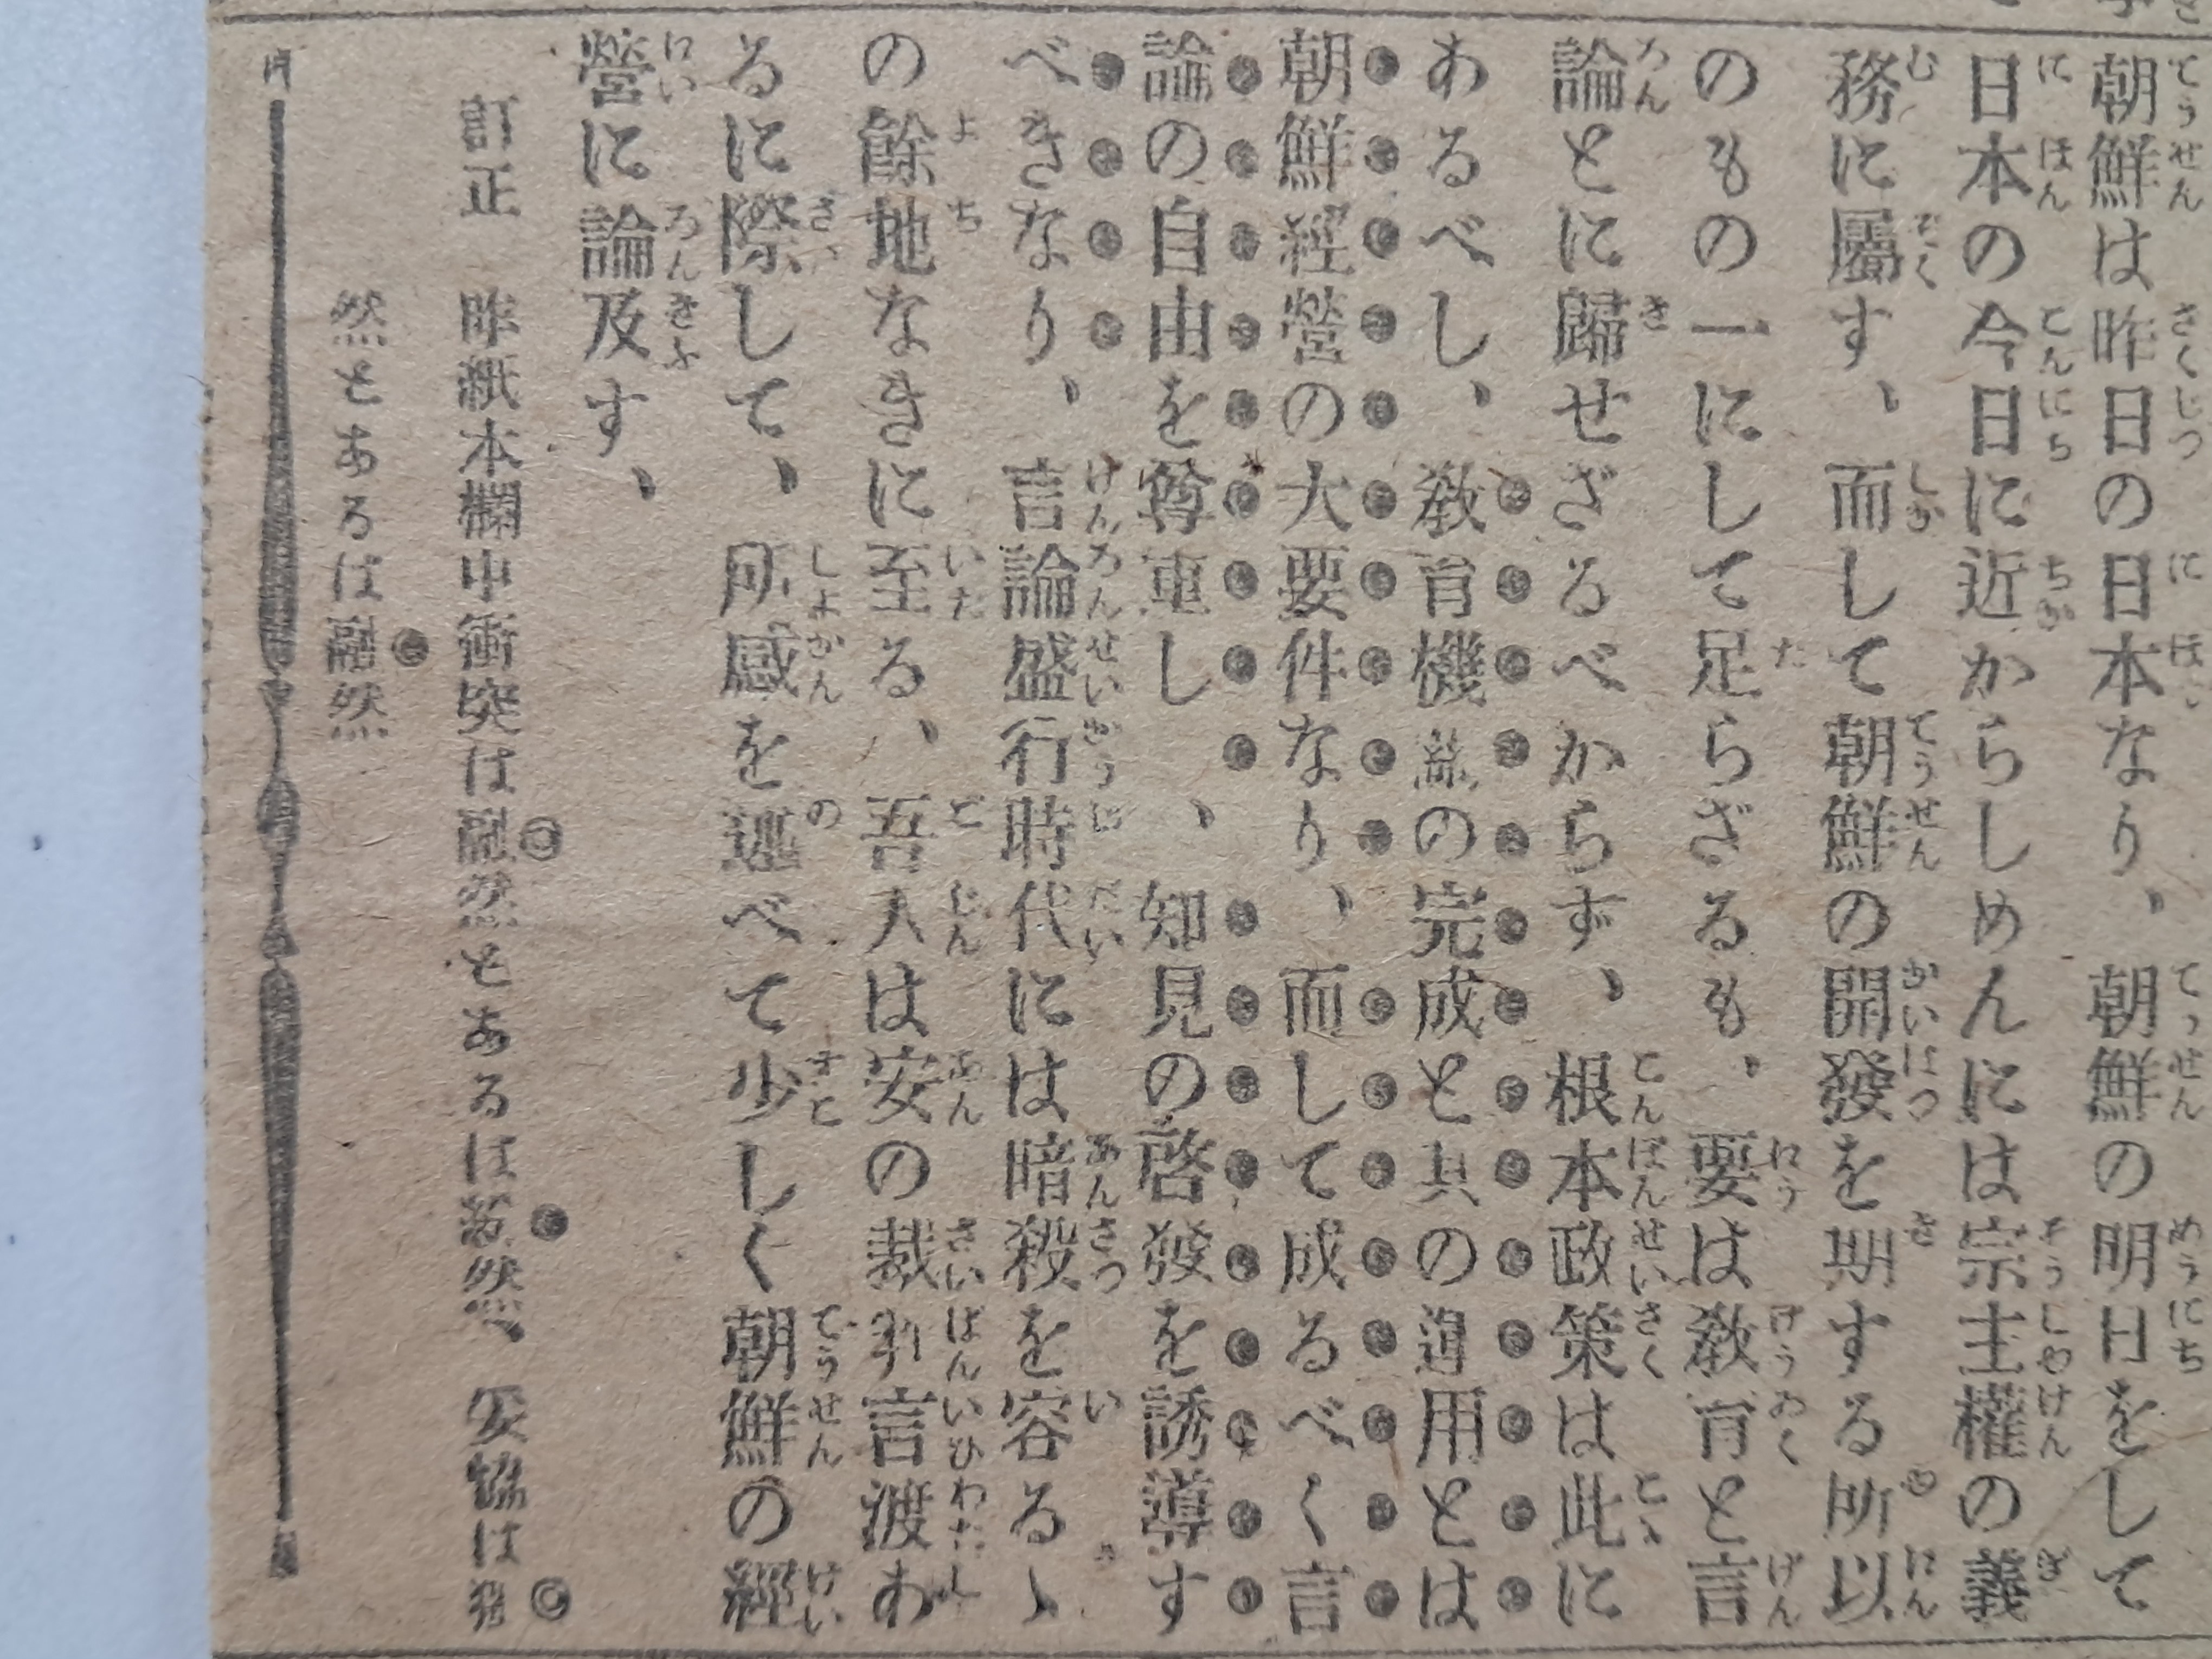 朝鮮は昨日の日本なり、朝鮮の明日をして
日本の今日に近からしめんには宗主權の義
務に屬す、而して朝鮮の開發を期する所以
のもの一にして足らざるも、要は敎育と言
論とに歸せざるべからず、根本政策は此に
あるべし、敎育機關の完成と其の運用とは
朝鮮經營の大要件なり、而して成るべく言
論の自由を尊重し、知見の啓發を誘導す
べきなり、言論盛行時代には暗殺を容るゝ
の餘地なきに至る、吾人は安の裁判言渡あ
るに際して、所感を述べて少しく朝鮮の經
營に論及す、
訂正 昨紙本欄中衝突は融然とあるは然、妥協は
然とあるは融然